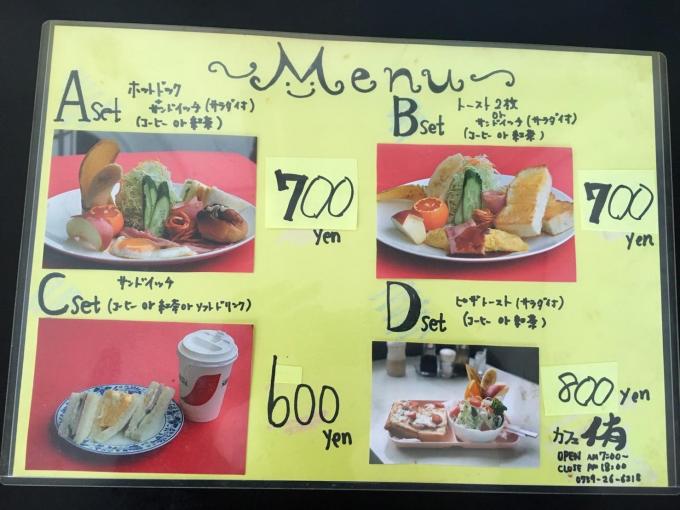 ~Menu~
A set
ホットドック
サンドイッチ (サラダ付)
(コーヒー or 紅茶)
700
yen
B set
トースト2枚
or
サンドイッチ (サラダ付)
(コーヒー or 紅茶)
700
yen
C set
サンドイッチ
(コーヒー or 紅茶 or ソフトドリンク)
600
yen
D set
ピザトースト (サラダ付)
(コーヒー or 紅茶)
800 yen
カフェ 侑
OPEN AM 7:00~
CLOSE PM 18:00
0739-26-6218